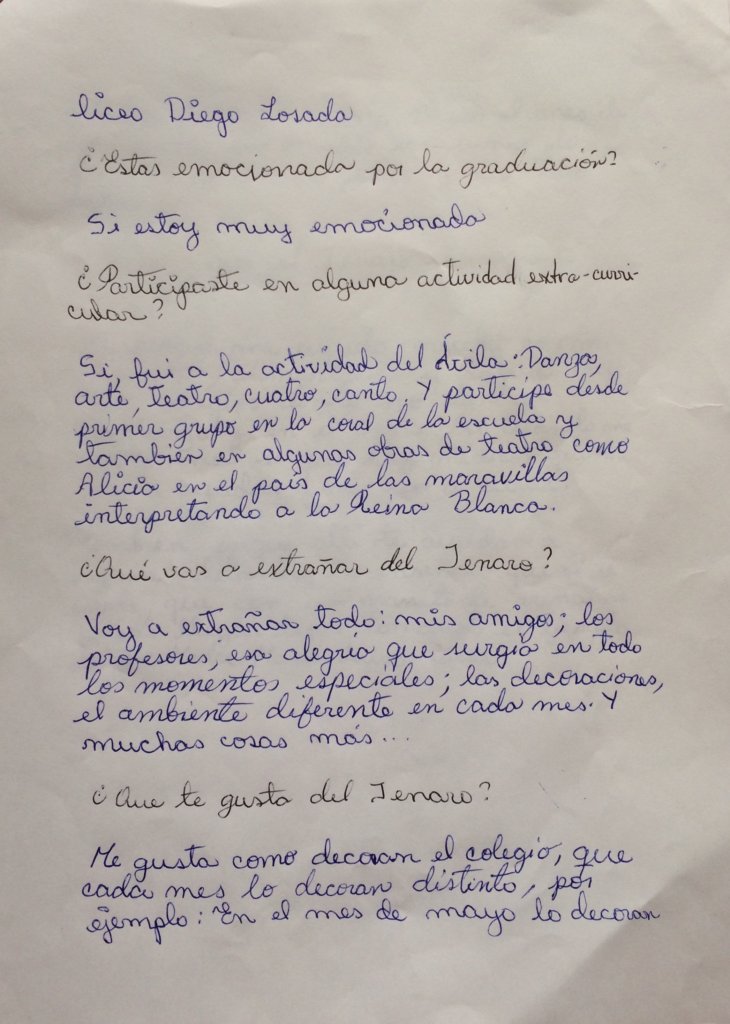 liceo Diego Losada
¿Estas emocionada por la graduación?
Si estoy muy emocionada
¿Participaste en alguna actividad extra-curri-
cular?
Si, fui a la actividad del Ávila: Danza,
arte, teatro, cuatro, canto. Y participe desde
primer grupo en la coral de la escuela y
también en algunas obras de teatro como
Alicia en el país de las maravillas
interpretando a la Reina Blanca.
¿Qué vas a extrañar del Jenaro?
Voy a extrañar todo: mis amigos; los
profesores; esa alegría que surgía en todo
los momentos especiales; las decoraciones,
el ambiente diferente en cada mes. Y
muchas cosas más...
¿Que te gusta del Jenaro?
Me gusta como decoran el colegio, que
cada mes lo decoran distinto, por
ejemplo: En el mes de mayo lo decoran